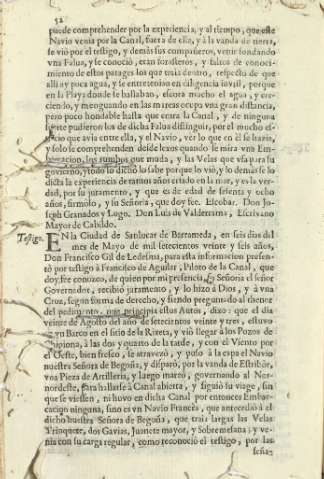 52
puede comprehender por la experiencia, y al tiempo, que este
Navio venia por la Canal, fuera de ella, y à la vanda de tierra,
se viò por el testigo, y demàs sus compañeros, venir sondando
vna Falua, y se conociò, eran forasteros, y faltos de conoci-
miento de estos parages los que traia dentro, respecto de que
alli ay poca agua, y se entretenian en diligencia inutil, porque
en la Playa donde se hallaban, aflora mucho el agua, y cre-
ciendo, y menguando en las mareas ocupa vna gran distancia,
pero poco hondable hasta que entra la Canal, y de ninguna
suerte pudieron los de dicha Falua distinguir, por el mucho es-
cio que avia entre ella, y el Navio, ver lo que en èl se hazia,
y solo se comprehenden desde lexos quando se mira vna Em-
barcacion, los rumbos que muda, y las Velas que vsa para su
govierno, y todo lo dicho lo sabe porque lo viò, y lo demàs se lo
dicta la experiencia de tantos años criado en la mar, y es la ver-
dad, por su juramento, y que es de edad de sesenta y ocho
años, firmòlo, y su Señoria, que doy fee. Escobar. Don Jo-
seph Granados y Lugo. Don Luis de Valderrama, Escrivano
Mayor de Cabildo.
Testigo.
EN la Ciudad de Sanlucar de Barrameda, en seis dias del
mes de Mayo de mil setecientos veinte y seis años,
Don Francisco Gil de Ledesma, para esta informacion presen-
tò por testigo à Francisco de Aguilar, Piloto de la Canal, que
doy fee conozco, de quien por mi presencia, su Señoria el señor
Governador, recibiò juramento, y lo hizo à Dios, y à vna
Cruz, segun forma de derecho, y siendo preguntado al thenor
del pedimento, que principia estos Autos, dixo: que el dia
veinte de Agosto del año de setecientos veinte y tres, estuvo
en su Barco en el sitio de la Riteta, y viò llegar à los Pozos de
Chipiona, à las dos y quarto de la tarde, y con el Viento por
el Oeste, bien fresco, se atravezò, y puso à la capa el Navio
nuestra Señora de Begoña, y disparò, por la vanda de Estribòr,
vna Pieza de Artilleria, y luego mareò, governando al Ner-
nordeste, para hallarse à Canal abierta, y siguiò su viage, sin
que se viessen, ni huvo en dicha Canal por entonces Embar-
cacion ninguna, sino es vn Navio Francès, que antecediò à el
dicho nuestra Señora de Begoña, que traia largas las Velas
Trinquete, dos Gavias, Juanete mayor, y Sobremesana; y ve-
nia con su carga regular, como reconociò el testigo, por las
señas